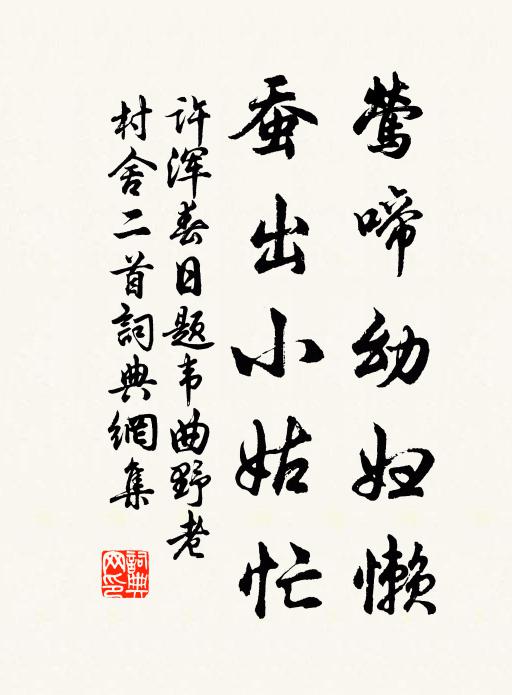 莺啼幼妇懒
蚕出小姑忙
许浑春日题韦曲野老
村舍二首詞典網集
詞典
网印